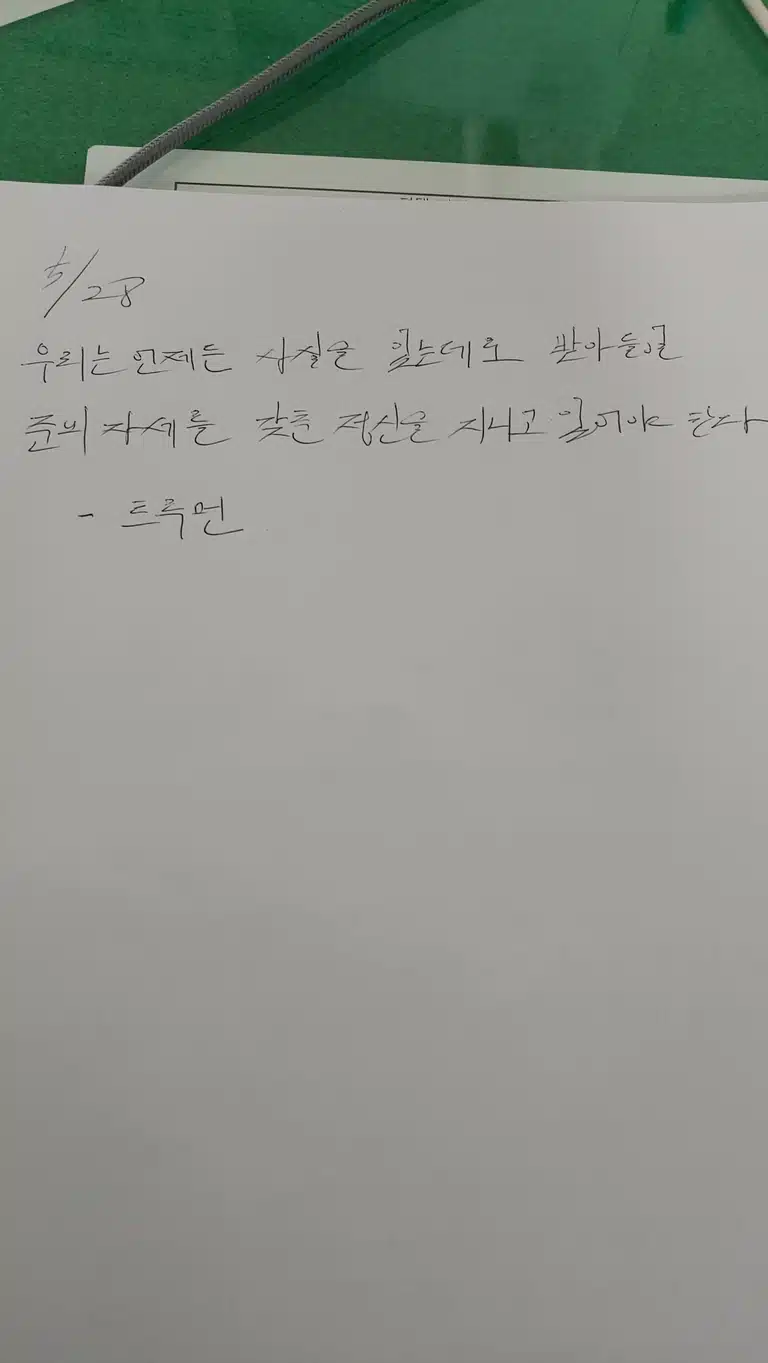 5/28
우리는 언제든 사실을 있는데로 받아들일
준비 자세를 갖춘 정신을 지니고 있어야 한다
- 트루먼